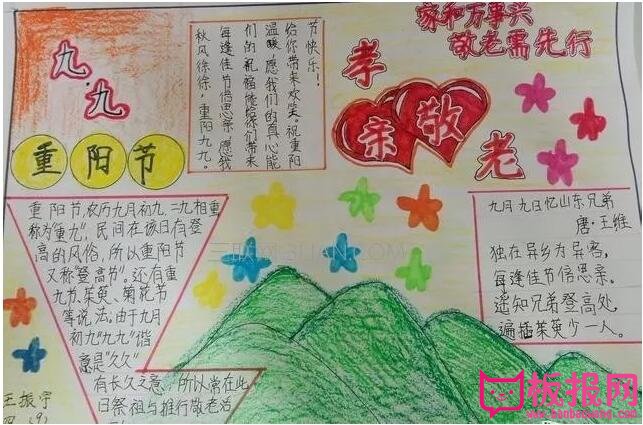 九.九
重阳节
节快乐！
给你带来欢笑。祝重阳
温暖，愿我们的真心能
们的祝福能给你们带来
每逢佳节倍思亲，愿我
秋风徐徐，重阳九九。
家和万事兴
敬老需先行
孝
亲敬
老
重阳节，农历九月初九，二九相重
称为"重九"。民间在该日有登
高的风俗，所以重阳节
又称"登高节"。还有重
九节、茱萸、菊花节
等说法。由于九月
初九"九九"谐
意是"久久"
有长久之意，所以常在此
日祭祖与推行敬老活
九月九日忆山东兄弟
唐·王维
独在异乡为异客，
每逢佳节倍思亲。
遥知兄弟登高处，
遍插茱萸少一人。
王振宇
板报网